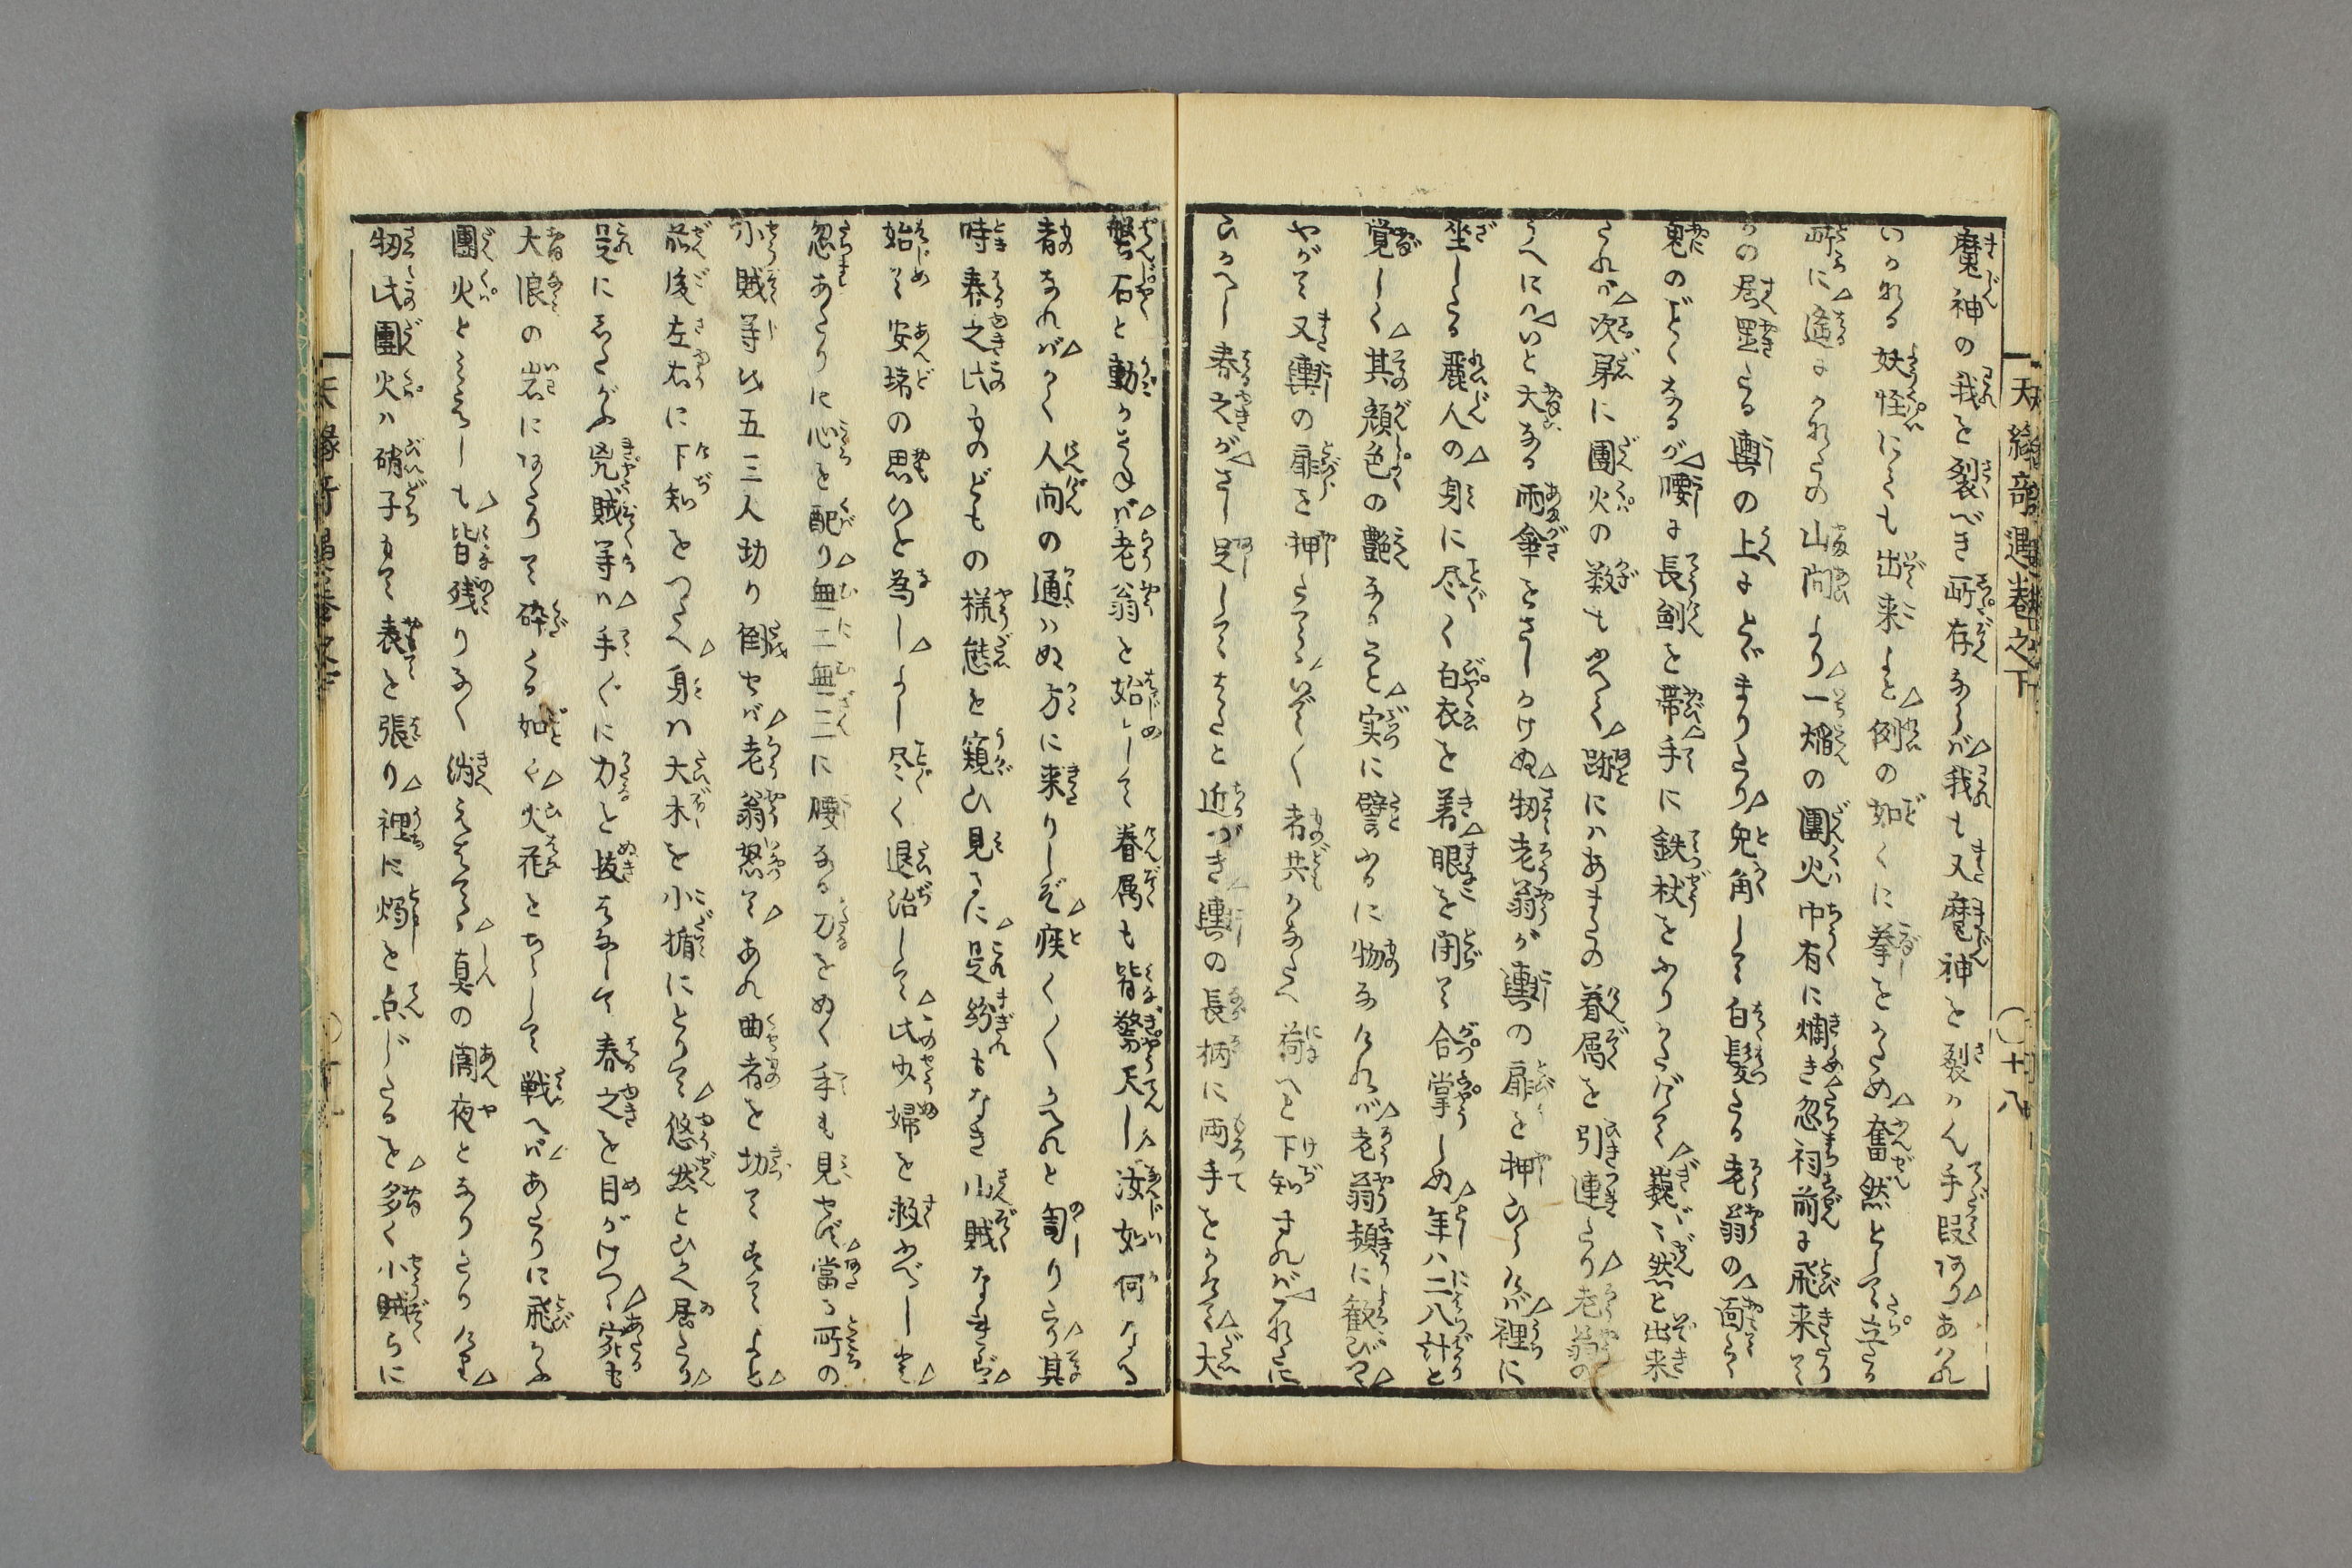 天縁奇遇巻之下 〇十八
魔神の我を裂べき所存ならバ△我も又魔神を裂かん手段あり△あハれ
いかなる妖怪にても出来よと△例の如くに拳をかため△奮然として立たる
所に△遙にかなたの山間より△一煽の團火巾有に爛き△忽祠前に飛来て
かの居置たる輿の上にとゞまりたり△兎角して白髪たる老翁の△面ハ
鬼のごとくなるが△腰に長剣を帯△手に鉄杖をふりかたげて△巍〻然と出来
されバ△次第に團火の数もふへて△跡にハあまたの眷属を引連たり△老翁の
うへにハ△いと大なる雨傘をさしかけぬ△扨老翁が輿の扉を押ひらけバ△裡に
坐したる麗人の△身に尽く白衣を着△眼を閉て合掌しぬ△年ハ二八計と
覚しく△其顔色の艶なること△実に譬ふるに物なけれバ△老翁頻に歓びて△
やがて又輿の扉を押たてゝ△いざ〳〵者共かなたへ荷へと下知すれバ△されに
ひかへし春之が△さし足してはたと近づき△輿の長柄に両手をかけて△大
磐石と動かさねバ△老翁を始として眷属も皆驚天し△汝如何なる
者なれバ△かく人間の通ハぬ方に来りしぞ△疾〳〵かへれと匐り△其
時春之此ものどもの様態を窺ひ見るに△是紛もなき山賊なれバ△
始て安堵の思ひを為し△よし尽く退治して△此少婦を救ふべしと△
忽あたりに心を配り△無二無三に腰なる刀をぬく手も見せず△當る所の
小賊等此五三人切り倒せバ△老翁怒て△あれ曲者を切て捨よと△
前後左右に下知をつたへ△身ハ大木を小楯にとりて△悠然とひかへ居たり△
是にしたがふ兇賊等ハ△手〴〵に力を抜はなして春之を目がけつゝ△宛も
大浪の岩にあたりて砕くる如く△火花をちらして戦へバ△あたりに飛かふ
團火と見えしも△皆残りなく消えはてゝ△真の闇夜となりたりけり△
扨此團火ハ硝子もて表を張り△裡に燭を点じたるを△多く小賊らに